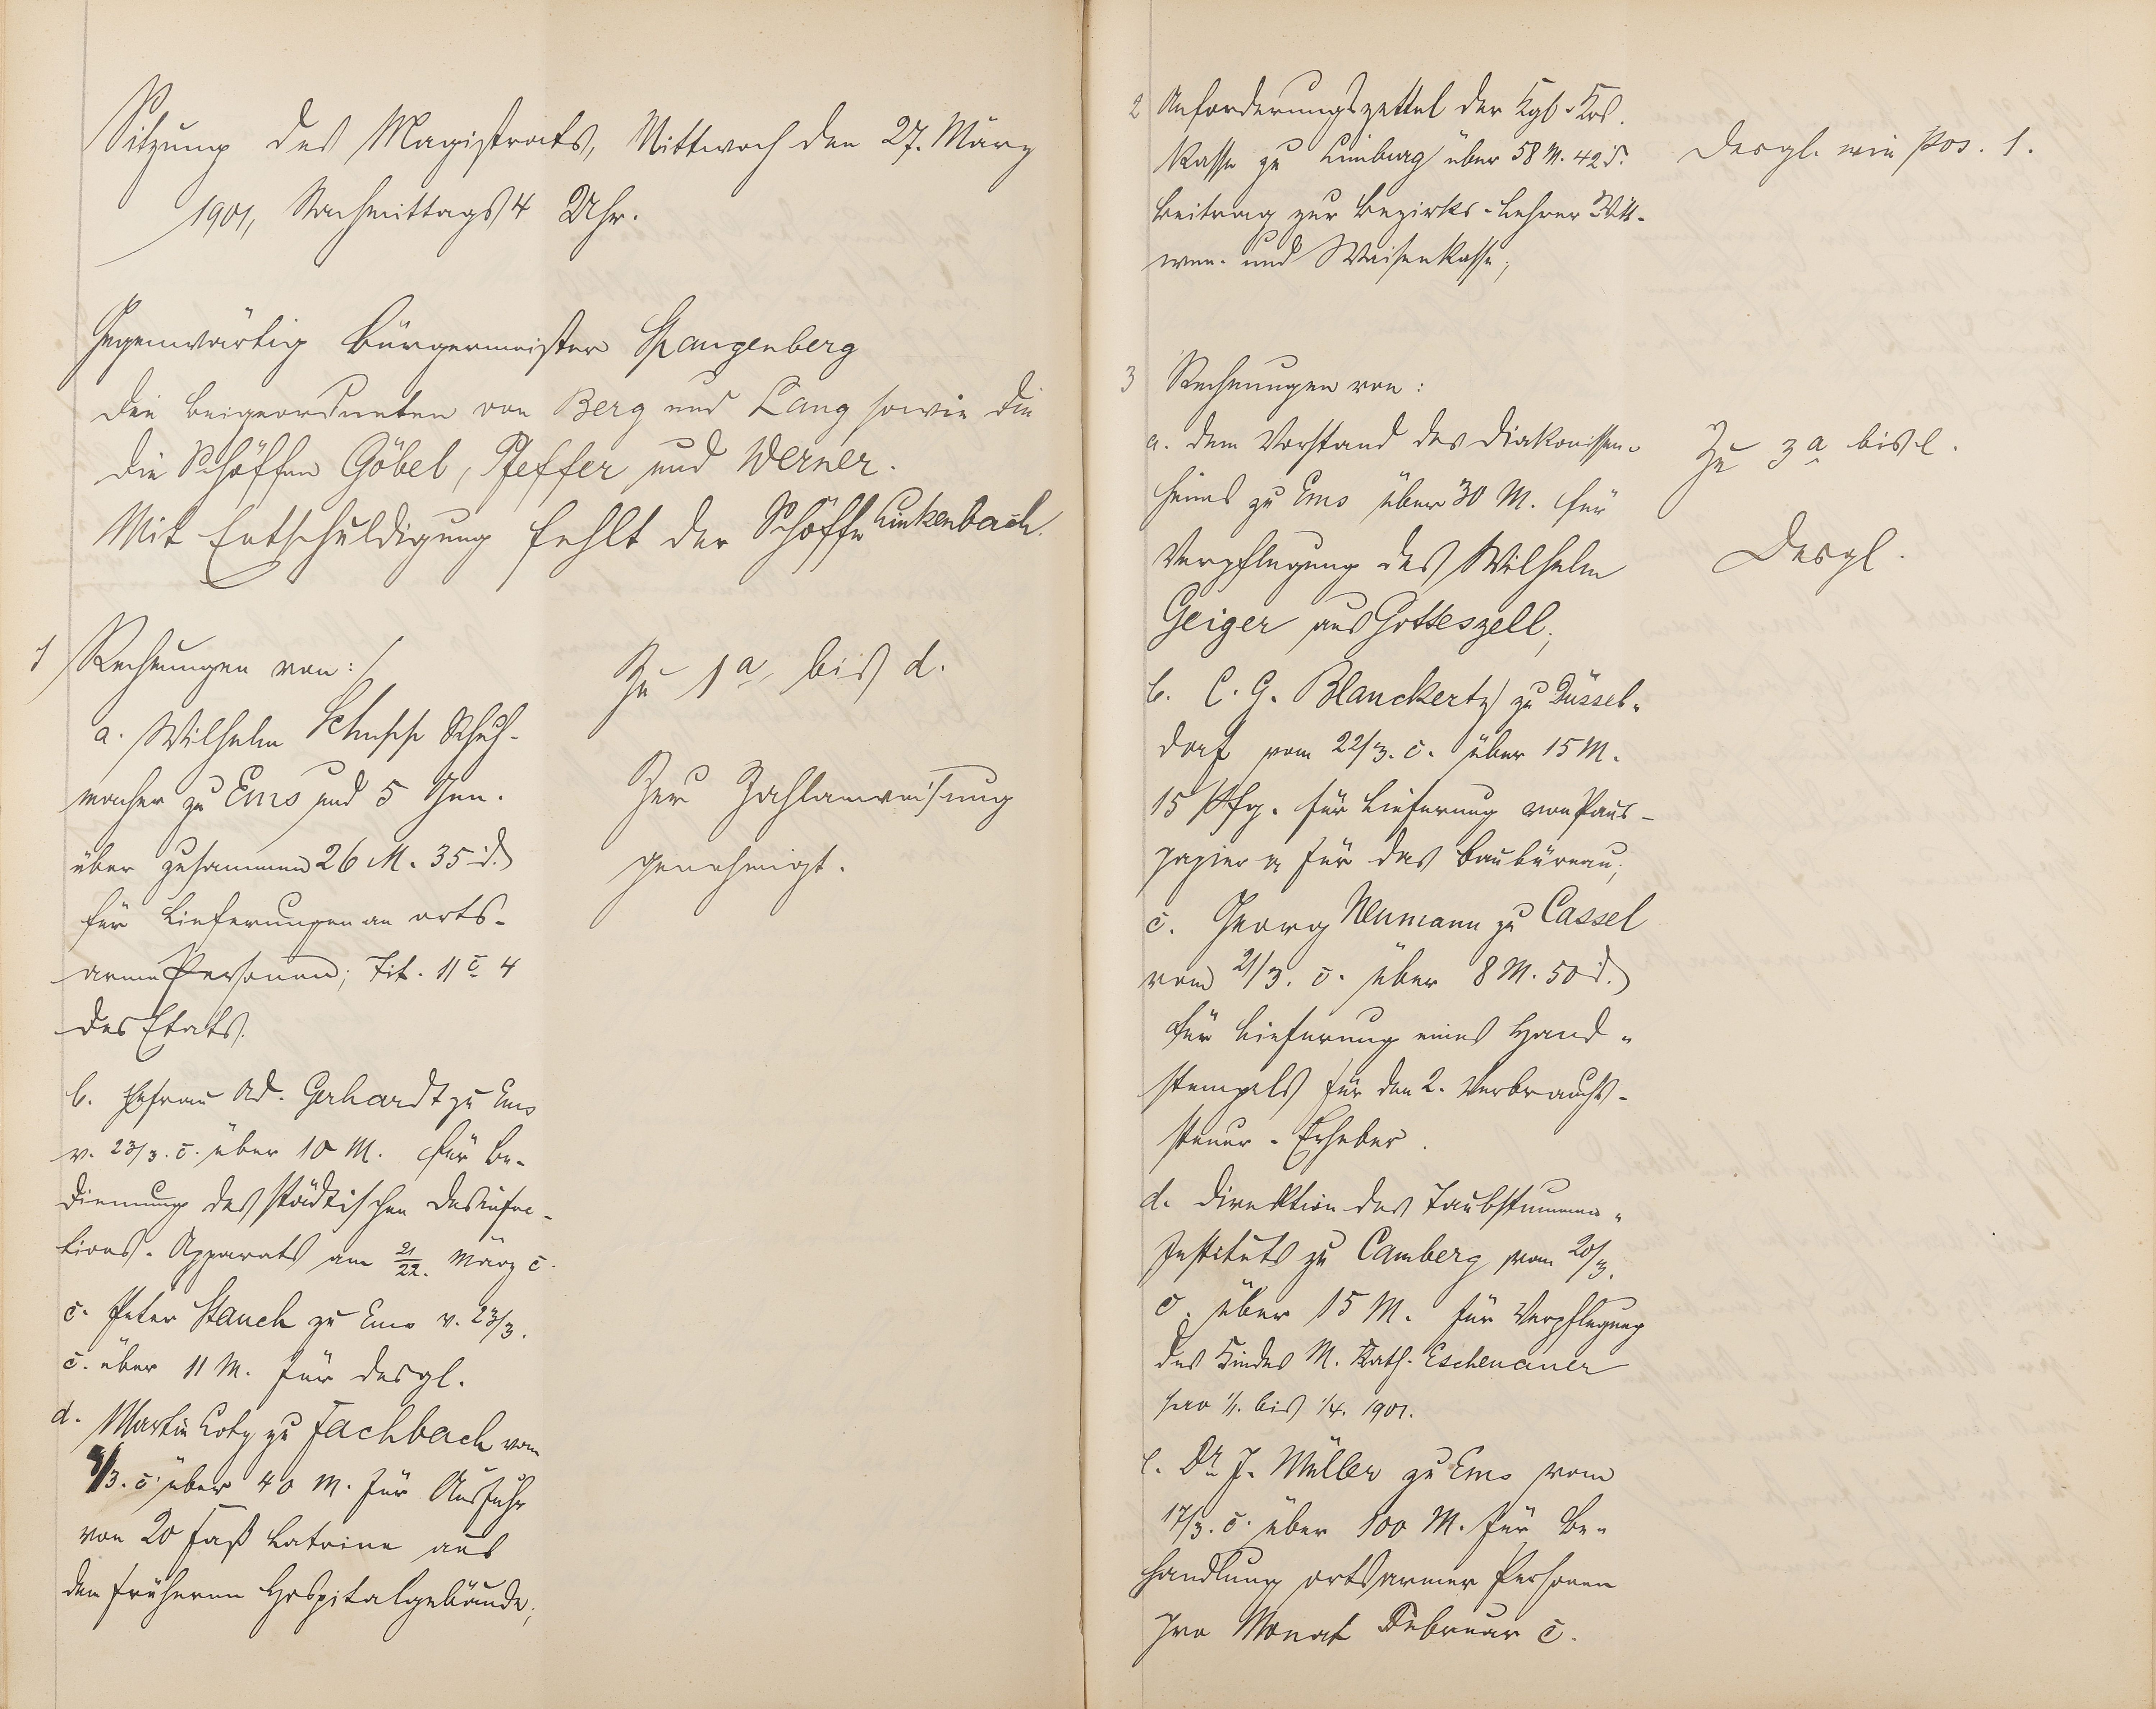 Sitzung des Magistrats, Mittwoch den 27. März
1901, Nachmittags 4 Uhr.
Gegenwärtig Bürgermeister Spangenberg
die Beigeordneten von Berg und Lang sowie die
die Schöffen Göbel, Pfeffer und Werner.
Mit Entschuldigung fehlt der Schöffe Linkenbach.
1 Rechnungen von:
a. Wilhelm Schupp Schuh-
macher zu Ems und 5 Gen.
über zusammen 26 M. 35 d.
für Lieferungen an orts-
arme Personen; Tit. 11 c 4
des Etats.
b. Ehefrau Ad. Gerhardt zu Ems
v. 23/3. c. über 10 M. für Be-
dienung des städtischen Desinfec-
tions-Apparats am 21/22. März c.
c. Peter Stauch zu Ems v. 23/3.
c. über 11 M. für desgl.
d. Martin Loty zu Fachbach vom
/3. c. über 40 M. für Ausfuhr
von 20 Faß Latrine aus
dem früheren Hospitalgebäude;
Zu 1a, bis d.
Zur Zahlanweisung
genehmigt.
2 Anforderungszettel der Kgl. Krs.
Kasse zu Limburg über 58 M. 42 d.
Beitrag zur Bezirks-Lehrer Wit-
wen- und Waisenkasse;
Desgl. wie Pos. 1.
3 Rechnungen von:
a. dem Vorstand des Diakonissen-
heims zu Ems über 30 M. für
Verpflegung des Wilhelm
Geiger aus Gotteszell;
b. C. G. Blanckertz zu Düssel-
dorf vom 22/3. c. über 15 M.
15 Pfg. für Lieferung von Paus-
papier für das Baubüreau;
c. Georg Neumann zu Cassel
vom 21/3. c. über 8 M. 50 d.
für Lieferung eines Hand-
stempels für den 2. Verbrauchs-
steuer-Erheber.
d. Direktion des Taubstummen-
Instituts zu Camberg vom 20/3.
c. über 15 M. für Verpflegung
des Kindes M. Kath. Eschenauer
pro 1/1. bis 1/4. 1901.
e. Dr. J. Müller zu Ems vom
17/3. c. über 100 M. für Be-
handlung ortsarmer Personen
pro Monat Februar c.
Zu 3a bis e.
Desgl.